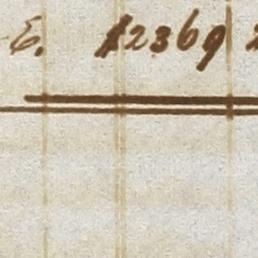 E. $2369